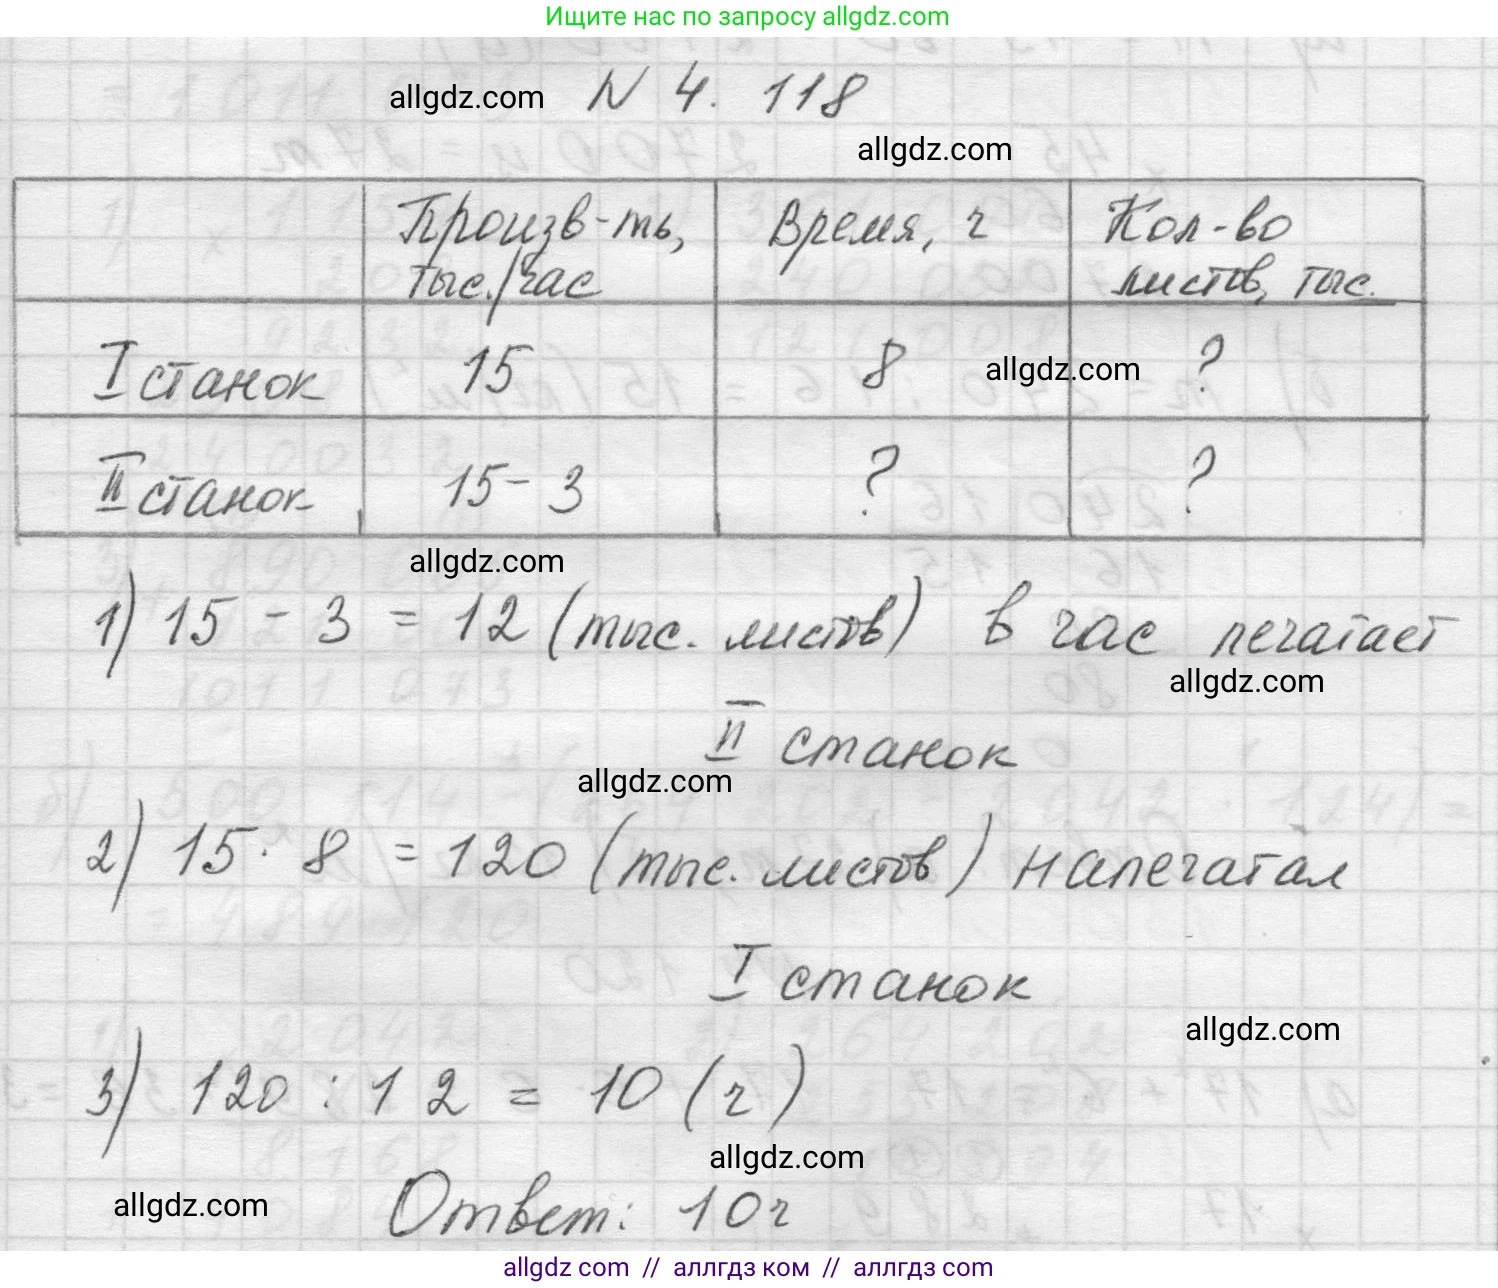 Ищите нас по запросу allgdz.com
allgdz.com N 4. 118
allgdz.com
Произв-ть, тыс./час Время, ч Кол-во листов, тыс.
I станок 15 8 allgdz.com ?
II станок 15-3 ? ?
allgdz.com
1) 15 - 3 = 12 (тыс. листов) в час печатает
allgdz.com
II станок
allgdz.com
2) 15 · 8 = 120 (тыс. листов) напечатал
I станок
allgdz.com
3) 120 : 12 = 10 (ч)
allgdz.com
allgdz.com
Ответ: 10ч
allgdz com // аллгдз ком // аллгдз com